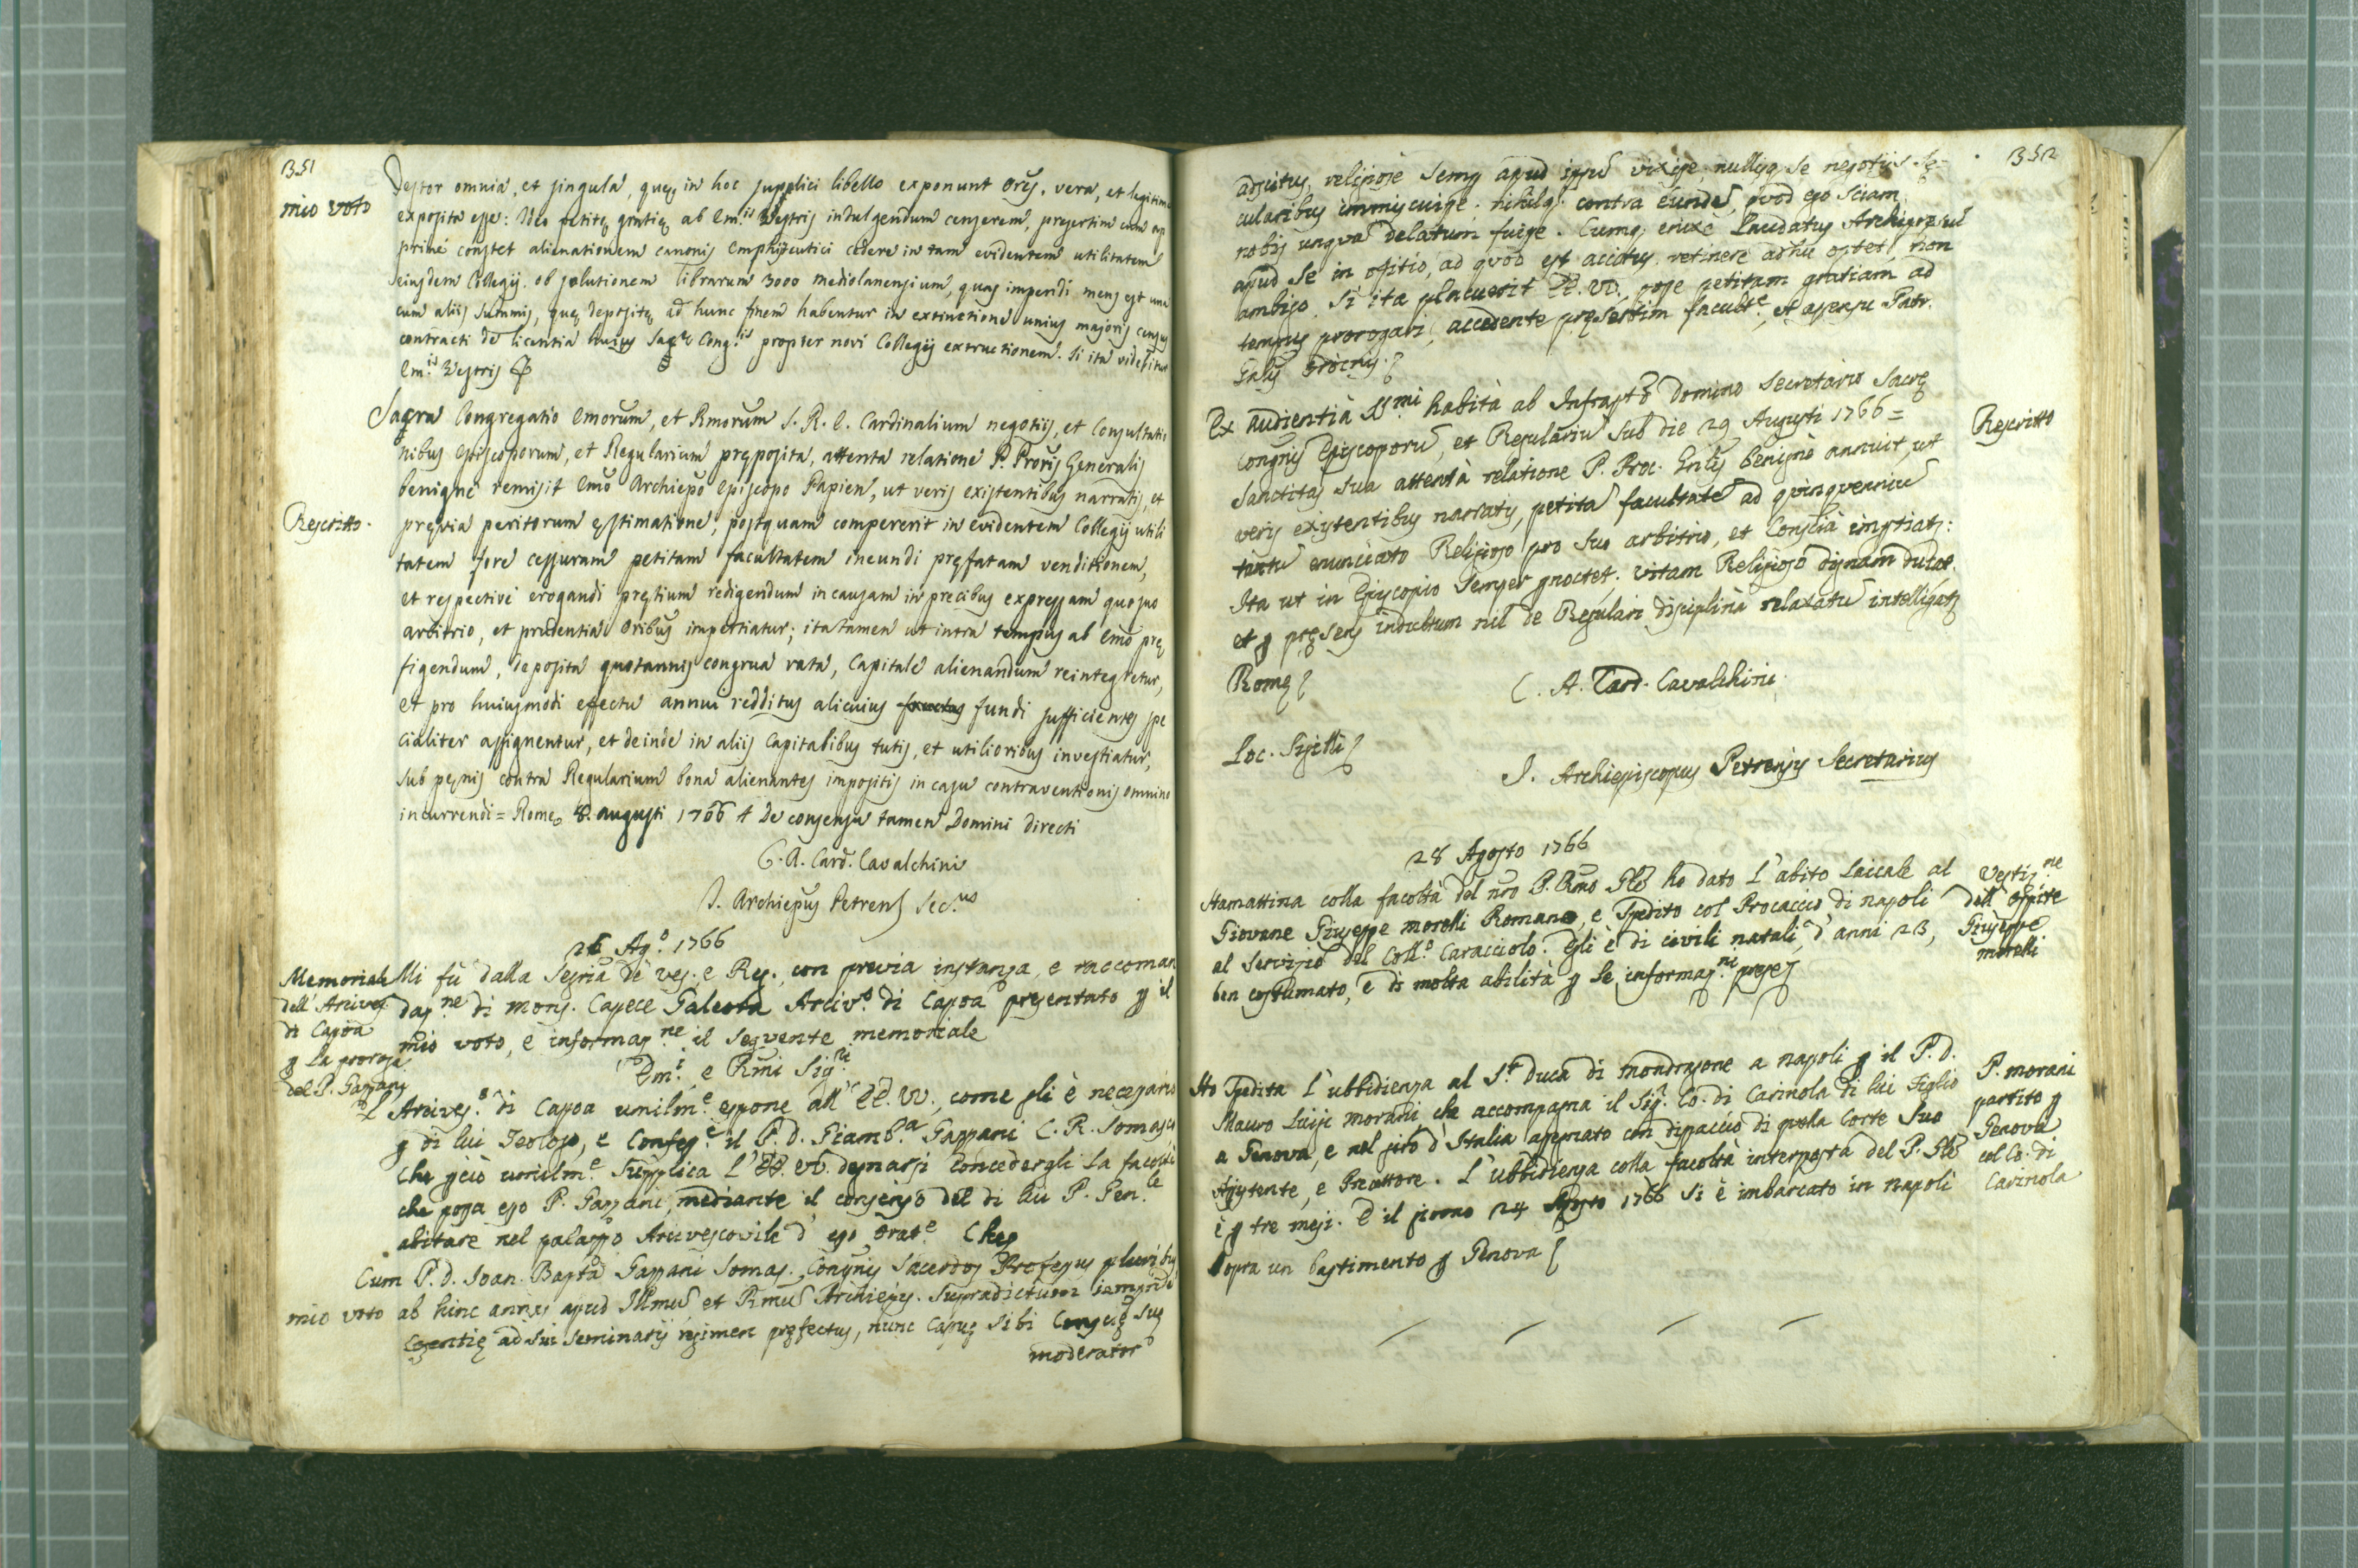 351
mio voto
Testor omnia, et singula, quę in hoc supplici libello exponunt Orēs, vera, et legitime
exposita esse: Ideo petitę gratię ab Em.is Vestris indulgendum censerem, presertim cum
prime constet alienationem canonis emphyteutici cedere in tam evidentem utilitatem
eiusdem Collegij ob solutionem librarum 3000 mediolanensium, quas impendi mens est una
cum aliis summis, quę depositę ad hunc finem habentur in extinctione unius majoris census
contracti de licentia huius Sacrę Cong.is propter novi Collegij extructionem. Si ita videbitur
Em.is Vestris
Sacra Congregatio Emorum, et Rmorum S. R. E. Cardinalium negotiis, et Consultatio
nibus Episcoporum, et Regularium pręposita, attenta relatione P. Proris Generalis
benigne remisit Emo Archiepo Episcopo Papien, ut veris existentibus narratis, et
Rescritto.
pręvia peritorum ęstimatione; postquam compererit in evidentem Collegij utili
tatem fore cessuram petitam facultatem ineundi pręfatam venditionem,
et respective erogandi pretium redigendum in causam in precibus expressam quo suo
arbitrio, et prudentia Oribus impertiatur; ita tamen ut intra tempus ab Emo prę
figendum, deposita quotannis congrua rata, Capitale alienandum reintegretur,
et pro huiusmodi effectu annui redditus alicuius fructus fundi sufficientes spe
cialiter assignentur, et deinde in aliis Capitalibus tutis, et utilioribus investiatur,
sub pęnis contra Regularium bona alienantes impositis in casu contraventionis omnino
incurrendi = Romę 8. augusti 1766 + De consensu tamen Domini directi
C. A. Card. Cavalchini
J. Archiepus Petrens Sec.us
26 Ag.o 1766
Memoriale
dell' Arcives
di Capoa
ꝑ la proroga
del P. Gazzani
Mi fù dalla Segria de' ves. e Reg. con previa instanza, e raccoman
daz.ne di mons. Capece Galeota Arciv.o di Capoa presentato ꝑ il
mio voto, e informaz.ne il seguente memoriale
Em.i e Rmi Sig.ri
L' Arcives.o di Capoa umilm.e espone all' EE. VV., come gli è necessario
ꝑ di lui Teologo, e Confess.e il P. D. Giamb.a Gazzani C. R. Somasco
Che ꝑciò umilm.e supplica L' EE. VV. degnarsi Concedergli La facoltà
che possa esso P. Gazzani, mediante il consenso del di lui P. Gen.le
abitare nel palazzo Arcivescovile d' esso Orat.e Che
mio voto
Cum P. D. Joan. Bapta Gazzani Somas. Congnis Sacerdos Professus pluribus
ab hinc annis apud Illmū et Rmū Archiepis. supradictum
ad sui seminarij regimen pręfectus, nunc Capuę sibi suę
moderator
352
adscitus, religiose semꝑ apud ipsū vixisse, nullisq se negotiis sę-
cularibus immiscuisse. nihilq contra eundē, quod ego sciam
nobis unquā delatum fuisse. Cumq; enixe Laudatus Archiepus eū
apud se in ofitio, ad quod est accitus, retinere adhuc optet, non
ambigo, si ita placuerit EE. VV., posse petitam gratiam ad
tempus prorogari, accedente pręsertim facult.e, et assensu Patr.
Gnlis Ordinis.
Rescritto
Ex audientià SSmi habità ab Infrapto Domino Secretario Sacrę
Congnis Episcoporū, et Regulariū sub die 29 Augusti 1766 =
Sanctitas sua attentà relatione P. Proc. Gnlis benignè annuit, ut
veris existentibus narratis, petitā facultatē ad quinquenniū
tantū enunciato Religioso pro suo arbitrio, et Consciā impertiat:
Ita ut in Episcopio semper ꝑnoctet. vitam Religioso dignam ducat
et ꝑ pręsens indultum nil de Regulari disciplinà relaxatū intelligat
Romę
C. A. Card. Cavalchini.
Loc. Sigilli
J. Archiepiscopus Petrensis Secretarius
28 Agosto 1766
Vestiz.ne
dell' ospite
Giuseppe
morelli
Stamattina colla facoltà del nro P. Rmo Gle ho dato L' abito laicale al
Giovane Giuseppe morelli Romano, e spedito col Procaccio di napoli
al servizio del Coll.o Caracciolo. Egli è di civili natali, d' anni 23,
ben costumato, e di molta abilità ꝑ le informaz.ni prese
P. morani
partito ꝑ
Genova
col Co. di
Carinola
Ho spedita l' ubbidienza al S.r Duca di mondragone a napoli ꝑ il P. D.
Mauro Luigi morani che accompagna il Sig.r Co. di Carinola di lui Figlio
a Genova, e nel giro d' Italia apprezzato con dispaccio di quella Corte suo
Assistente, e Precettore. L' ubbidienza colla facoltà interposta del P. Gle
è ꝑ tre mesi. E il giorno 24 Agosto 1766 si è imbarcato in napoli
sopra un bastimento ꝑ Genova